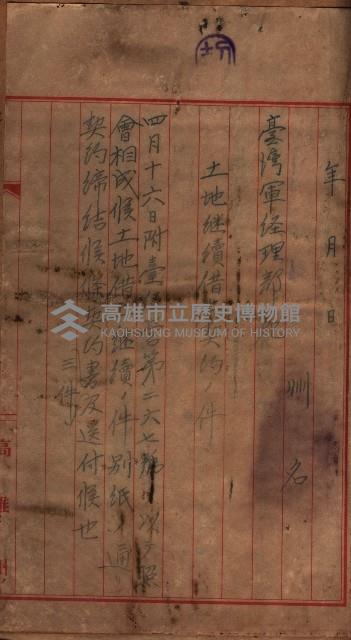 年 月 日
臺湾軍経理部
州名
土地継續借 約ノ件
四月十六日附臺 第二六七號ヲ以テ照
會相成候土地借 継續ノ件別紙ノ通
契約締結候條 約書及送付候也
三件
高雄州
高雄市立歷史博物館
KAOHSIUNG MUSEUM OF HISTORY